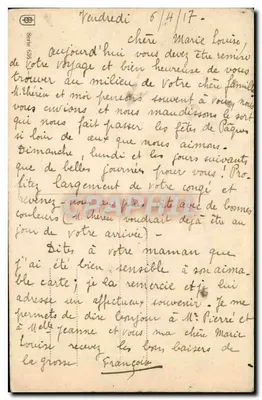 Vendredi 6/4/17.
chère Marie Louise,
aujourd'hui vous devez être remise
de votre voyage et bien heureuse de vous
trouver au milieu de votre chère famille
M. Thérèse et moi pensons souvent à vous, nous
vous envions et nous maudissons le sort
qui nous fait passer les fêtes de Pâques
si loin de ceux que nous aimons.
Dimanche lundi et les jours suivants
que de belles journées pour vous! Pro-
fitez largement de votre congé et
revenez-nous avec de bonnes
couleurs (Thérèse voudrait déjà être au
jour de votre arrivée) -
Dites à votre maman que
j'ai été bien sensible à son aima-
ble carte; je la remercie et je lui
adresse un affectueux souvenir. Je me
permets de dire bonjour à Mr Pierre et
à Melle Jeanne et vous ma chère Marie
Louise recevez les bons baisers de
la grosse François